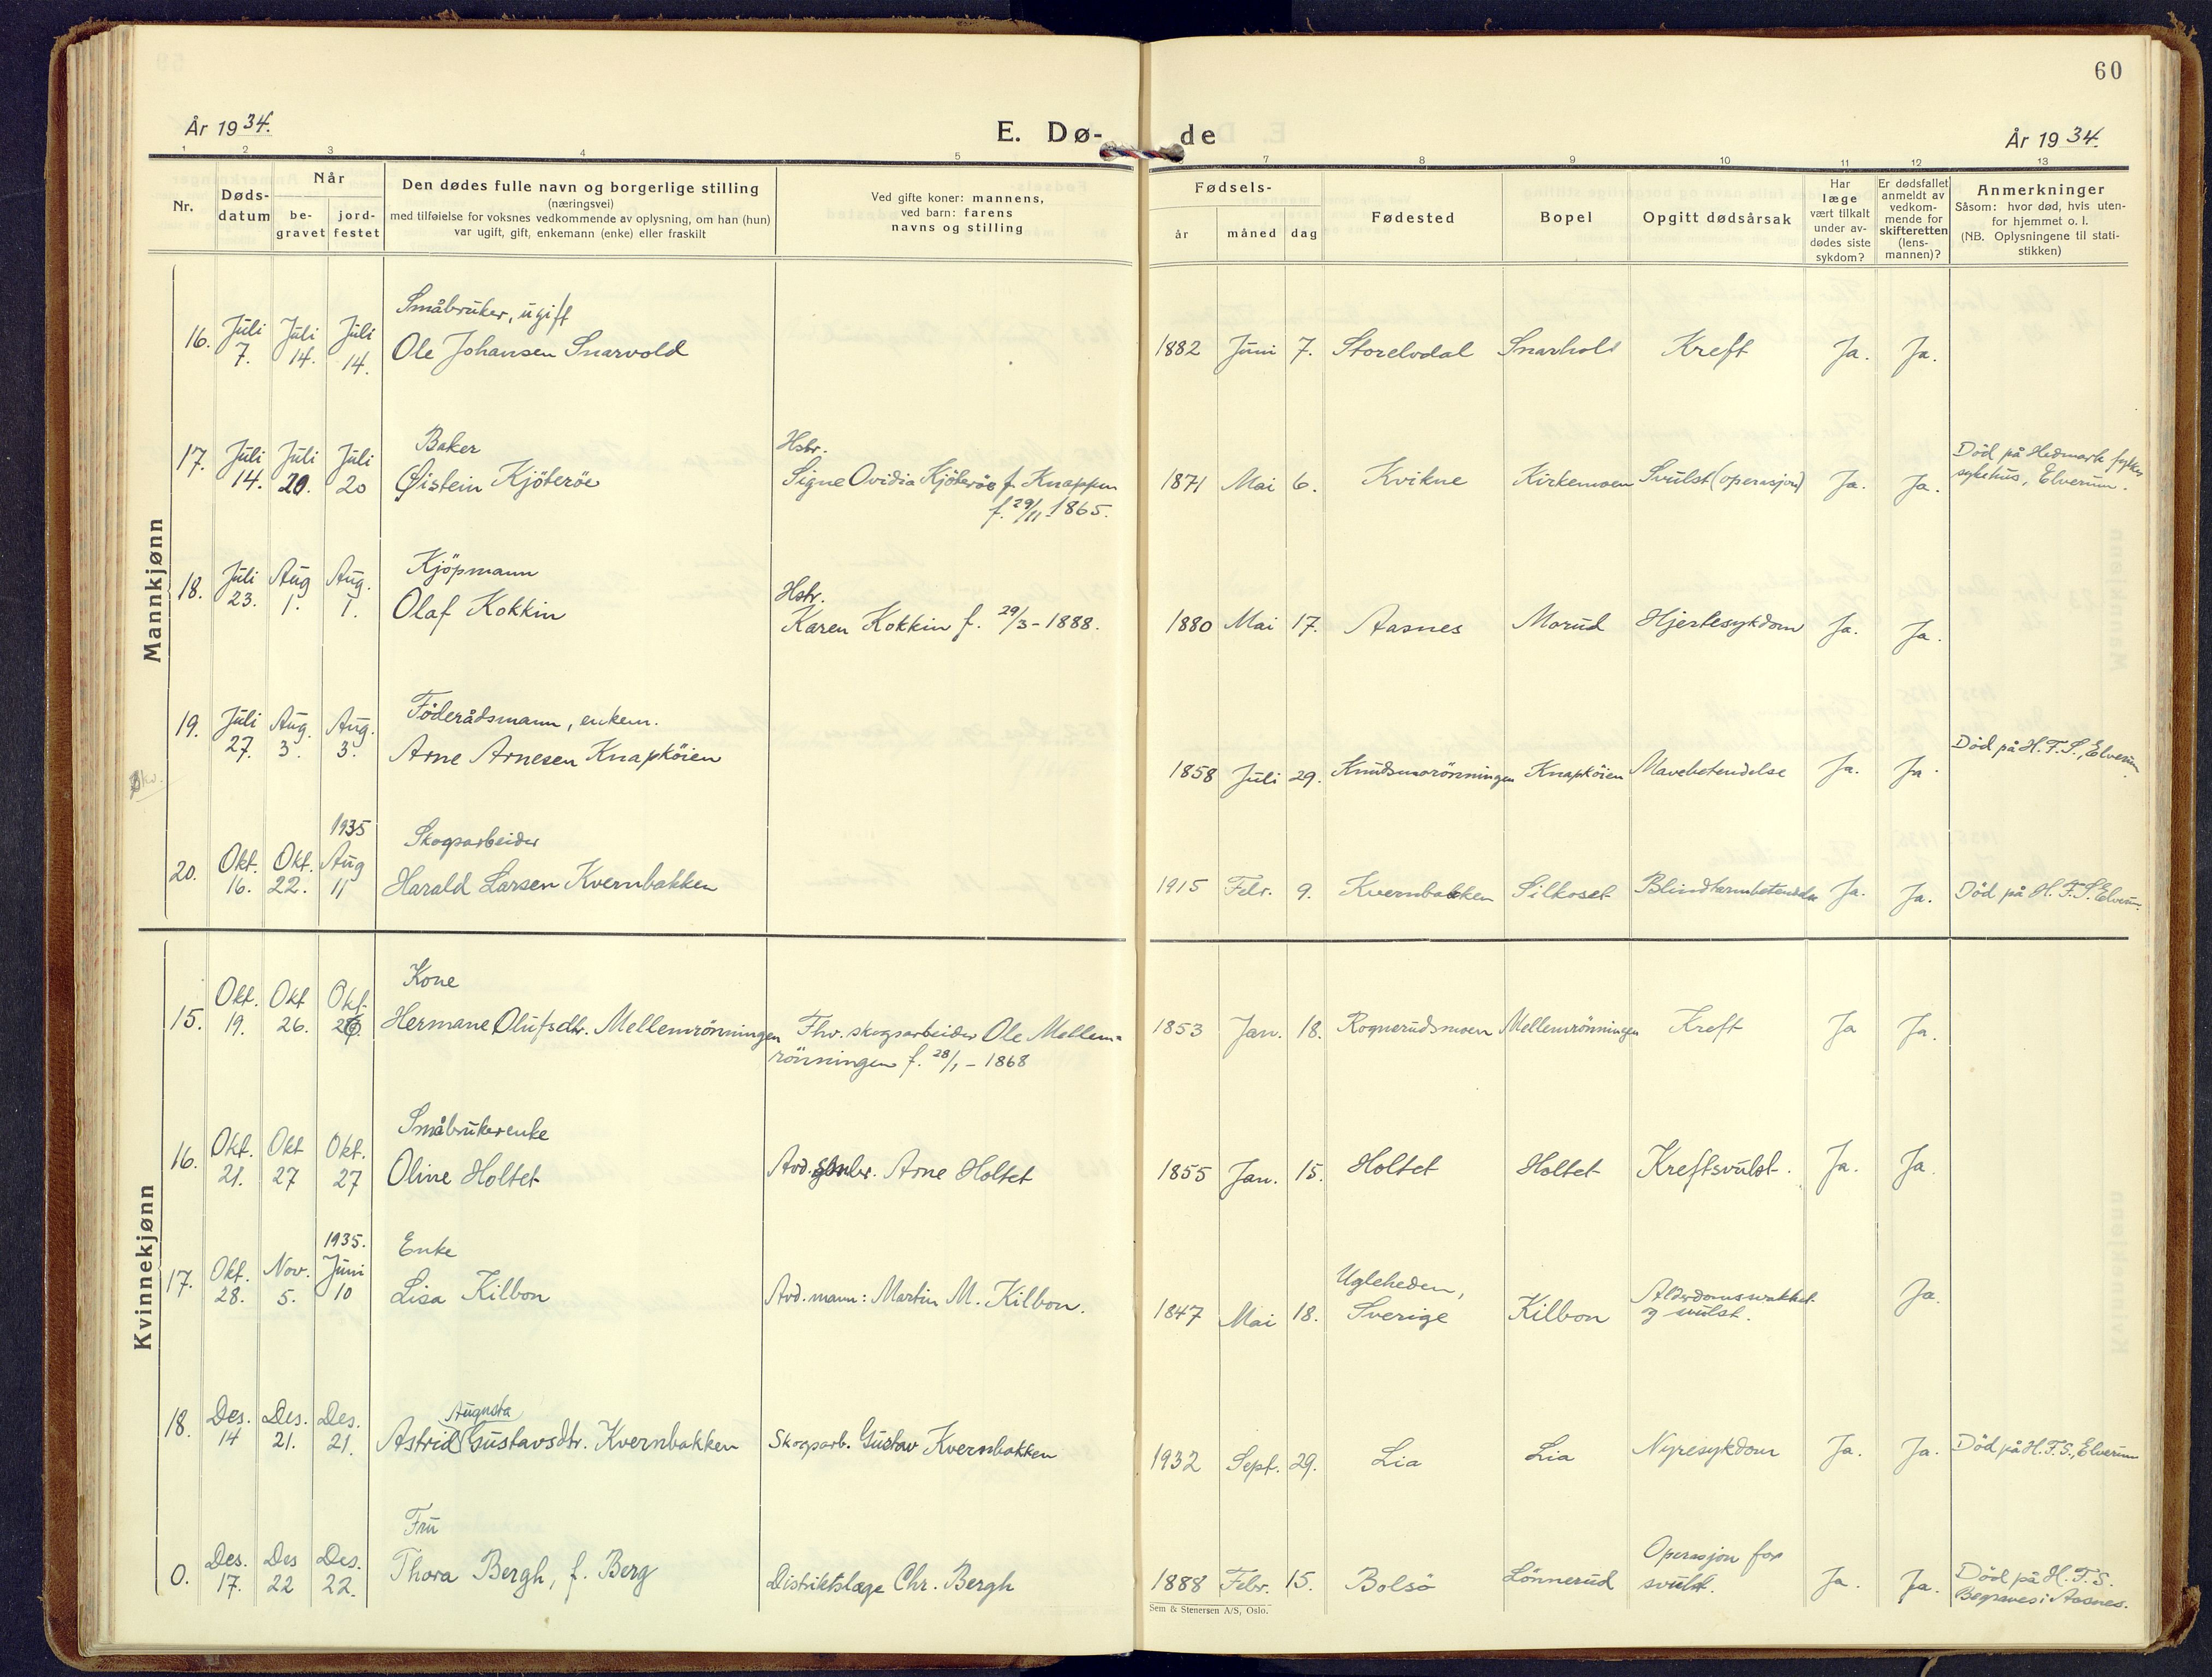 60
År 1934.
E. Dø- de
År 1934.
1 2 3 4 5 7 8 9 10 11 12 13
Nr.
Døds-
datum
Når
be-
gravet
jord-
festet
Den dødes fulle navn og borgerlige stilling
(næringsvei)
med tilføielse for voksnes vedkommende av oplysning, om han (hun)
var ugift, gift, enkemann (enke) eller fraskilt
Ved gifte koner: mannens,
ved barn: farens
navns og stilling
Fødsels-
år måned dag
Fødested
Bopel
Opgitt dødsårsak
Har
læge
vært tilkalt
under av-
dødes siste
sykdom?
Er dødsfallet
anmeldt av
vedkom-
mende for
skifteretten
(lens-
mannen)?
Anmerkninger
Såsom: hvor død, hvis uten-
for hjemmet o. l.
(NB. Oplysningene til stati-
stikken)
Mannkjønn
Småbruker, ugift
16. Juli 7. Juli 14. Juli 14. Ole Johansen Snarvold 1882 Juni 7. Storelvdal Snarhold Kreft Ja. Ja.
Baker
Hstr.
17. Juli 14. Juli 20. Juli 20 Øistein Kjöteröe Signe Ovidia Kjöteröe f. Knappen
f. 29/11 1865.
1871 Mai 6. Kvikne Kirkemoen Svulst (operasjon) Ja. Ja.
Død på Hedmark fylkes
sykehus, Elverum.
Kjöpmann
Hstr.
18. Juli 23. Aug 1. Aug. 1. Olaf Kokkin Karen Kokkin f. 29/3 - 1888. 1880 Mai 17. Aasnes Morud Hjertesykdom Ja. Ja.
Föderådsmann, enkem.
19. Juli 27. Aug. 3. Aug. 3. Arne Arnesen Knapköien 1858 Juli 29. Knudsmorönningen Knapköien Mavebetendelse Ja. Ja.
Död på H.F.S., Elverum
1935
Skogsarbeider
20. Okt. 16. Okt. 22. Aug 11 Harald Larsen Kvernbakken 1915 Febr. 9. Kvernbakken Silkoset Blindtarmbetendelse Ja. Ja. Död på H.F.S. Elverum.
Kvinnekjønn
Kone
15. Okt. 19. Okt 26. Okt 26. Hermane Olufsdtr. Mellemrönningen Fhv. skogsarbeider Ole Mellem-
rönningen f. 28/1 - 1868
1853 Jan. 18. Rognerudsmoen Mellemrönningen Kreft Ja Ja.
Småbrukerenke
16. Okt. 21. Okt 27 Okt. 27 Oline Holtet Avd. Arne Holtet 1855 Jan. 15. Holtet Holtet Kreftsvulst. Ja. Ja.
1935.
Enke
17. Okt. 28. Nov. 5. Juni 10 Lisa Kilbon Avd. mann: Martin M. Kilbon. 1847 Mai 18. Ugleheden,
Sverige Kilbon Alderdomssvakhet
og svulst. Ja.
Augusta
18. Des. 14 Des. 21. Des. 21. Astrid Gustavsdtr. Kvernbakken Skogsarb. Gustav Kvernbakken 1932 Sept. 29. Lia Lia Nyresykdom Ja. Ja. Död på H.F.S., Elverum
Fru
0. Des. 17. Des 22 Des. 22. Thora Bergh, f. Berg Distriktslæge Chr. Bergh 1888 Febr. 15. Bolsö Lönnerud Operasjon for
svulst. Ja. Ja. Död på H.F.S.
Begraves i Aasnes.
Sem & Stenersen A/S, Oslo.